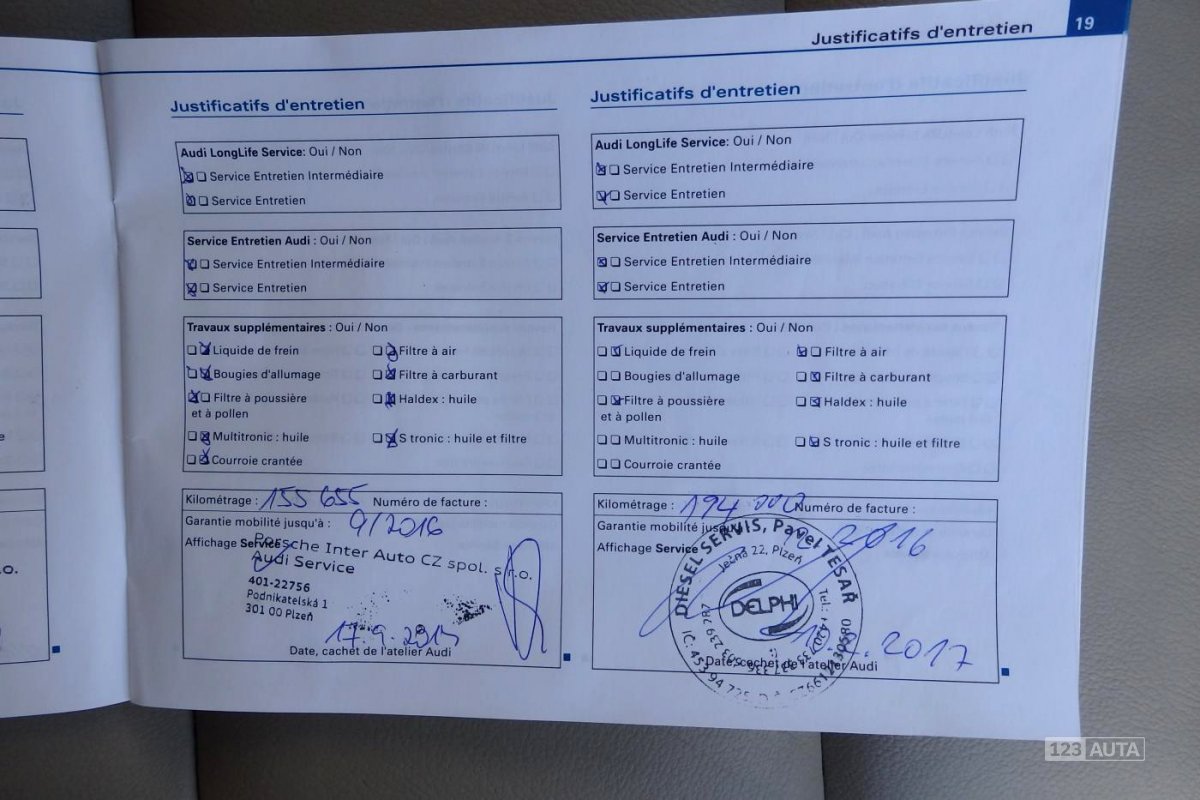 Justificatifs d'entretien 19
Justificatifs d'entretien
Audi LongLife Service: Oui / Non
Service Entretien Intermédiaire
Service Entretien
Service Entretien Audi : Oui / Non
Service Entretien Intermédiaire
Service Entretien
Travaux supplémentaires : Oui / Non
Liquide de frein Filtre à air
Bougies d'allumage Filtre à carburant
Filtre à poussière Haldex : huile
et à pollen
Multitronic : huile S tronic : huile et filtre
Courroie crantée
Kilométrage : 155 655 Numéro de facture :
Garantie mobilité jusqu'à : 9/2016
Affichage Service
Porsche Inter Auto CZ spol. s r.o.
Audi Service
401-22756
Podnikatelská 1
301 00 Plzeň
17.9.
Date, cachet de l'atelier Audi
Justificatifs d'entretien
Audi LongLife Service: Oui / Non
Service Entretien Intermédiaire
Service Entretien
Service Entretien Audi : Oui / Non
Service Entretien Intermédiaire
Service Entretien
Travaux supplémentaires : Oui / Non
Liquide de frein Filtre à air
Bougies d'allumage Filtre à carburant
Filtre à poussière Haldex : huile
et à pollen
Multitronic : huile S tronic : huile et filtre
Courroie crantée
Kilométrage : 194 000 Numéro de facture :
Garantie mobilité 2016
Affichage Service
DIESEL SERVIS, Pavel TESAŘ
Ječná 22, Plzeň
DELPHI
2017
Date, cachet de l'atelier Audi
123 AUTA